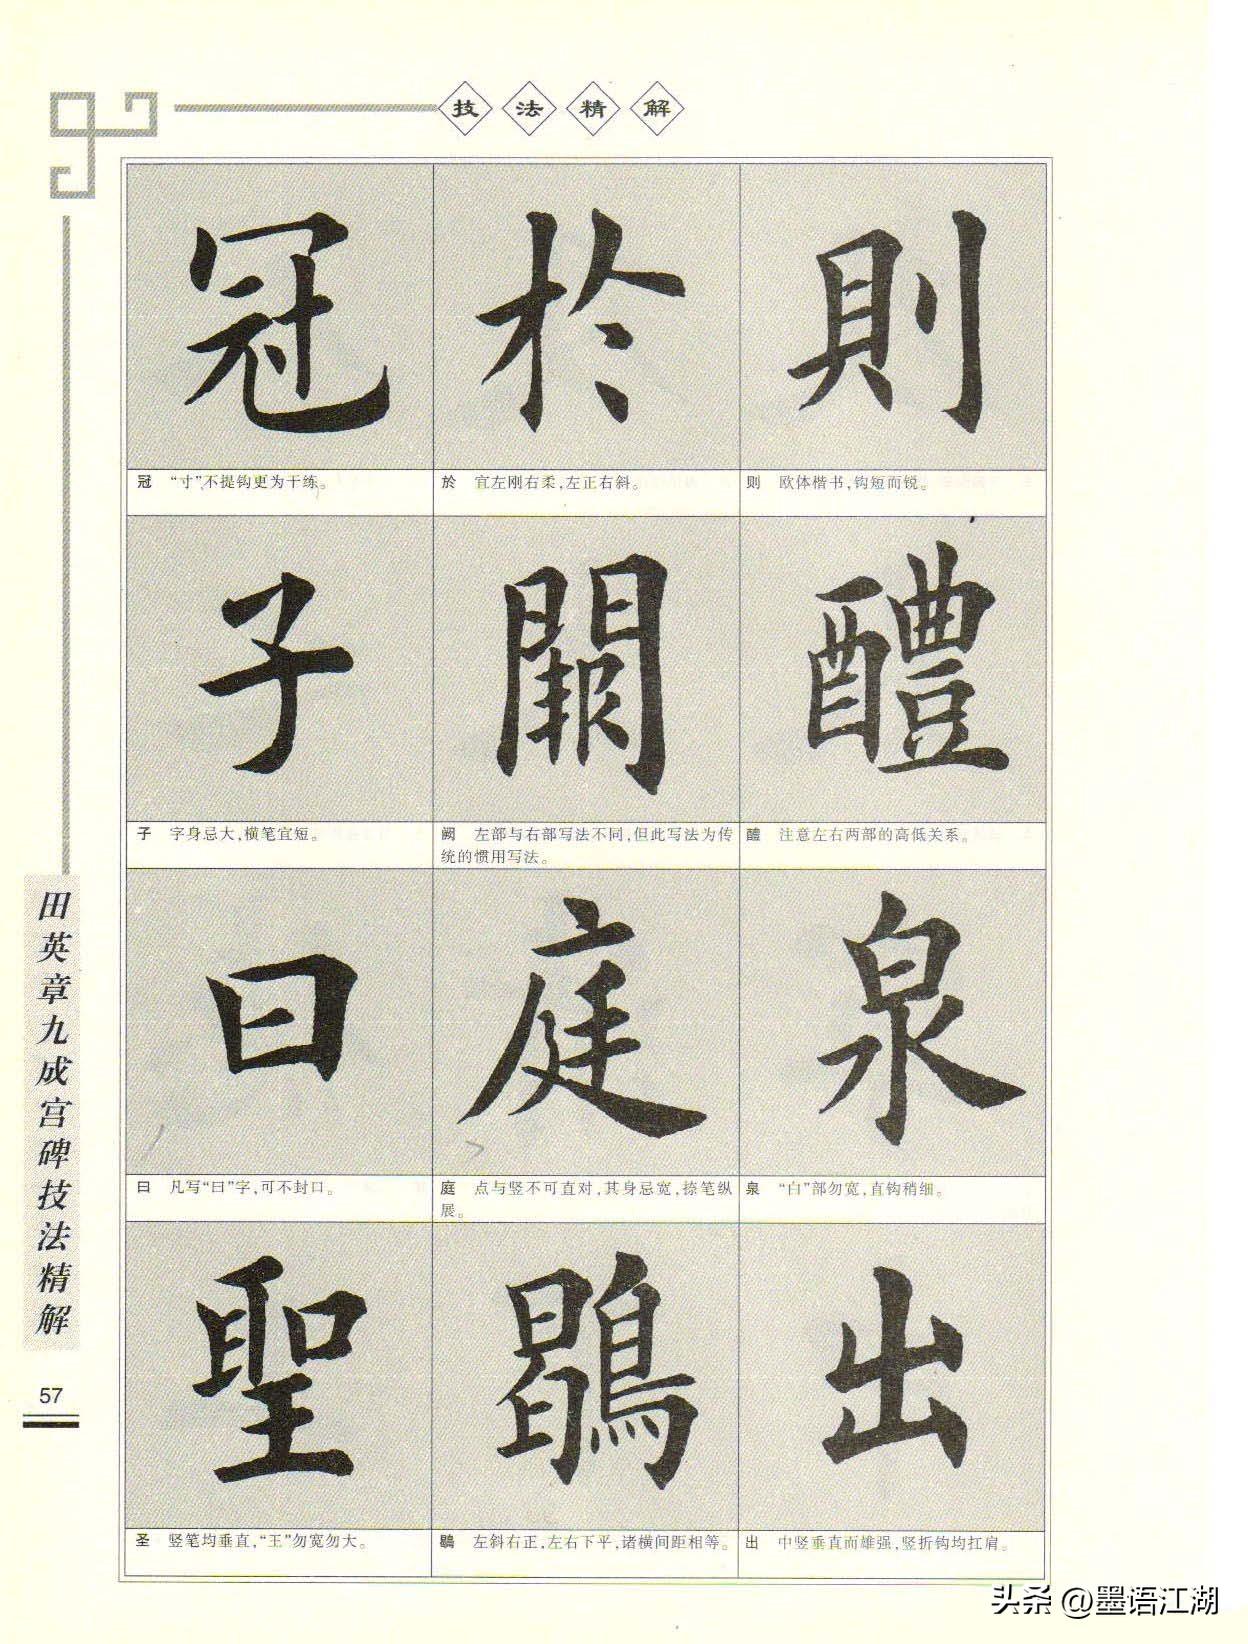 技法精解
冠 於 則
冠 “寸”不提钩更为干练。
於 宜左刚右柔,左正右斜。
则 欧体楷书,钩短而锐。
子 闕 醴
子 字身忌大,横笔宜短。
阙 左部与右部写法不同,但此写法为传
统的惯用写法。
醴 注意左右两部的高低关系。
曰 庭 泉
曰 凡写“曰”字,可不封口。
庭 点与竖不可直对,其身忌宽,捺笔纵
展。
泉 “白”部勿宽,直钩稍细。
聖 鶡 出
圣 竖笔均垂直,“王”勿宽勿大。
鶡 左斜右正,左右下平,诸横间距相等。
出 中竖垂直而雄强,竖折钩均扛肩。
田英章九成宫碑技法精解
57
头条 @墨语江湖